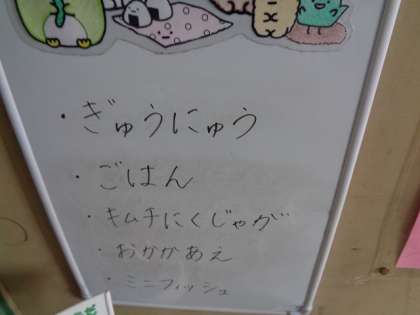 ・ぎゅうにゅう
・ごはん
・キムチにくじゃが
・おかかあえ
・ミニフィッシュ